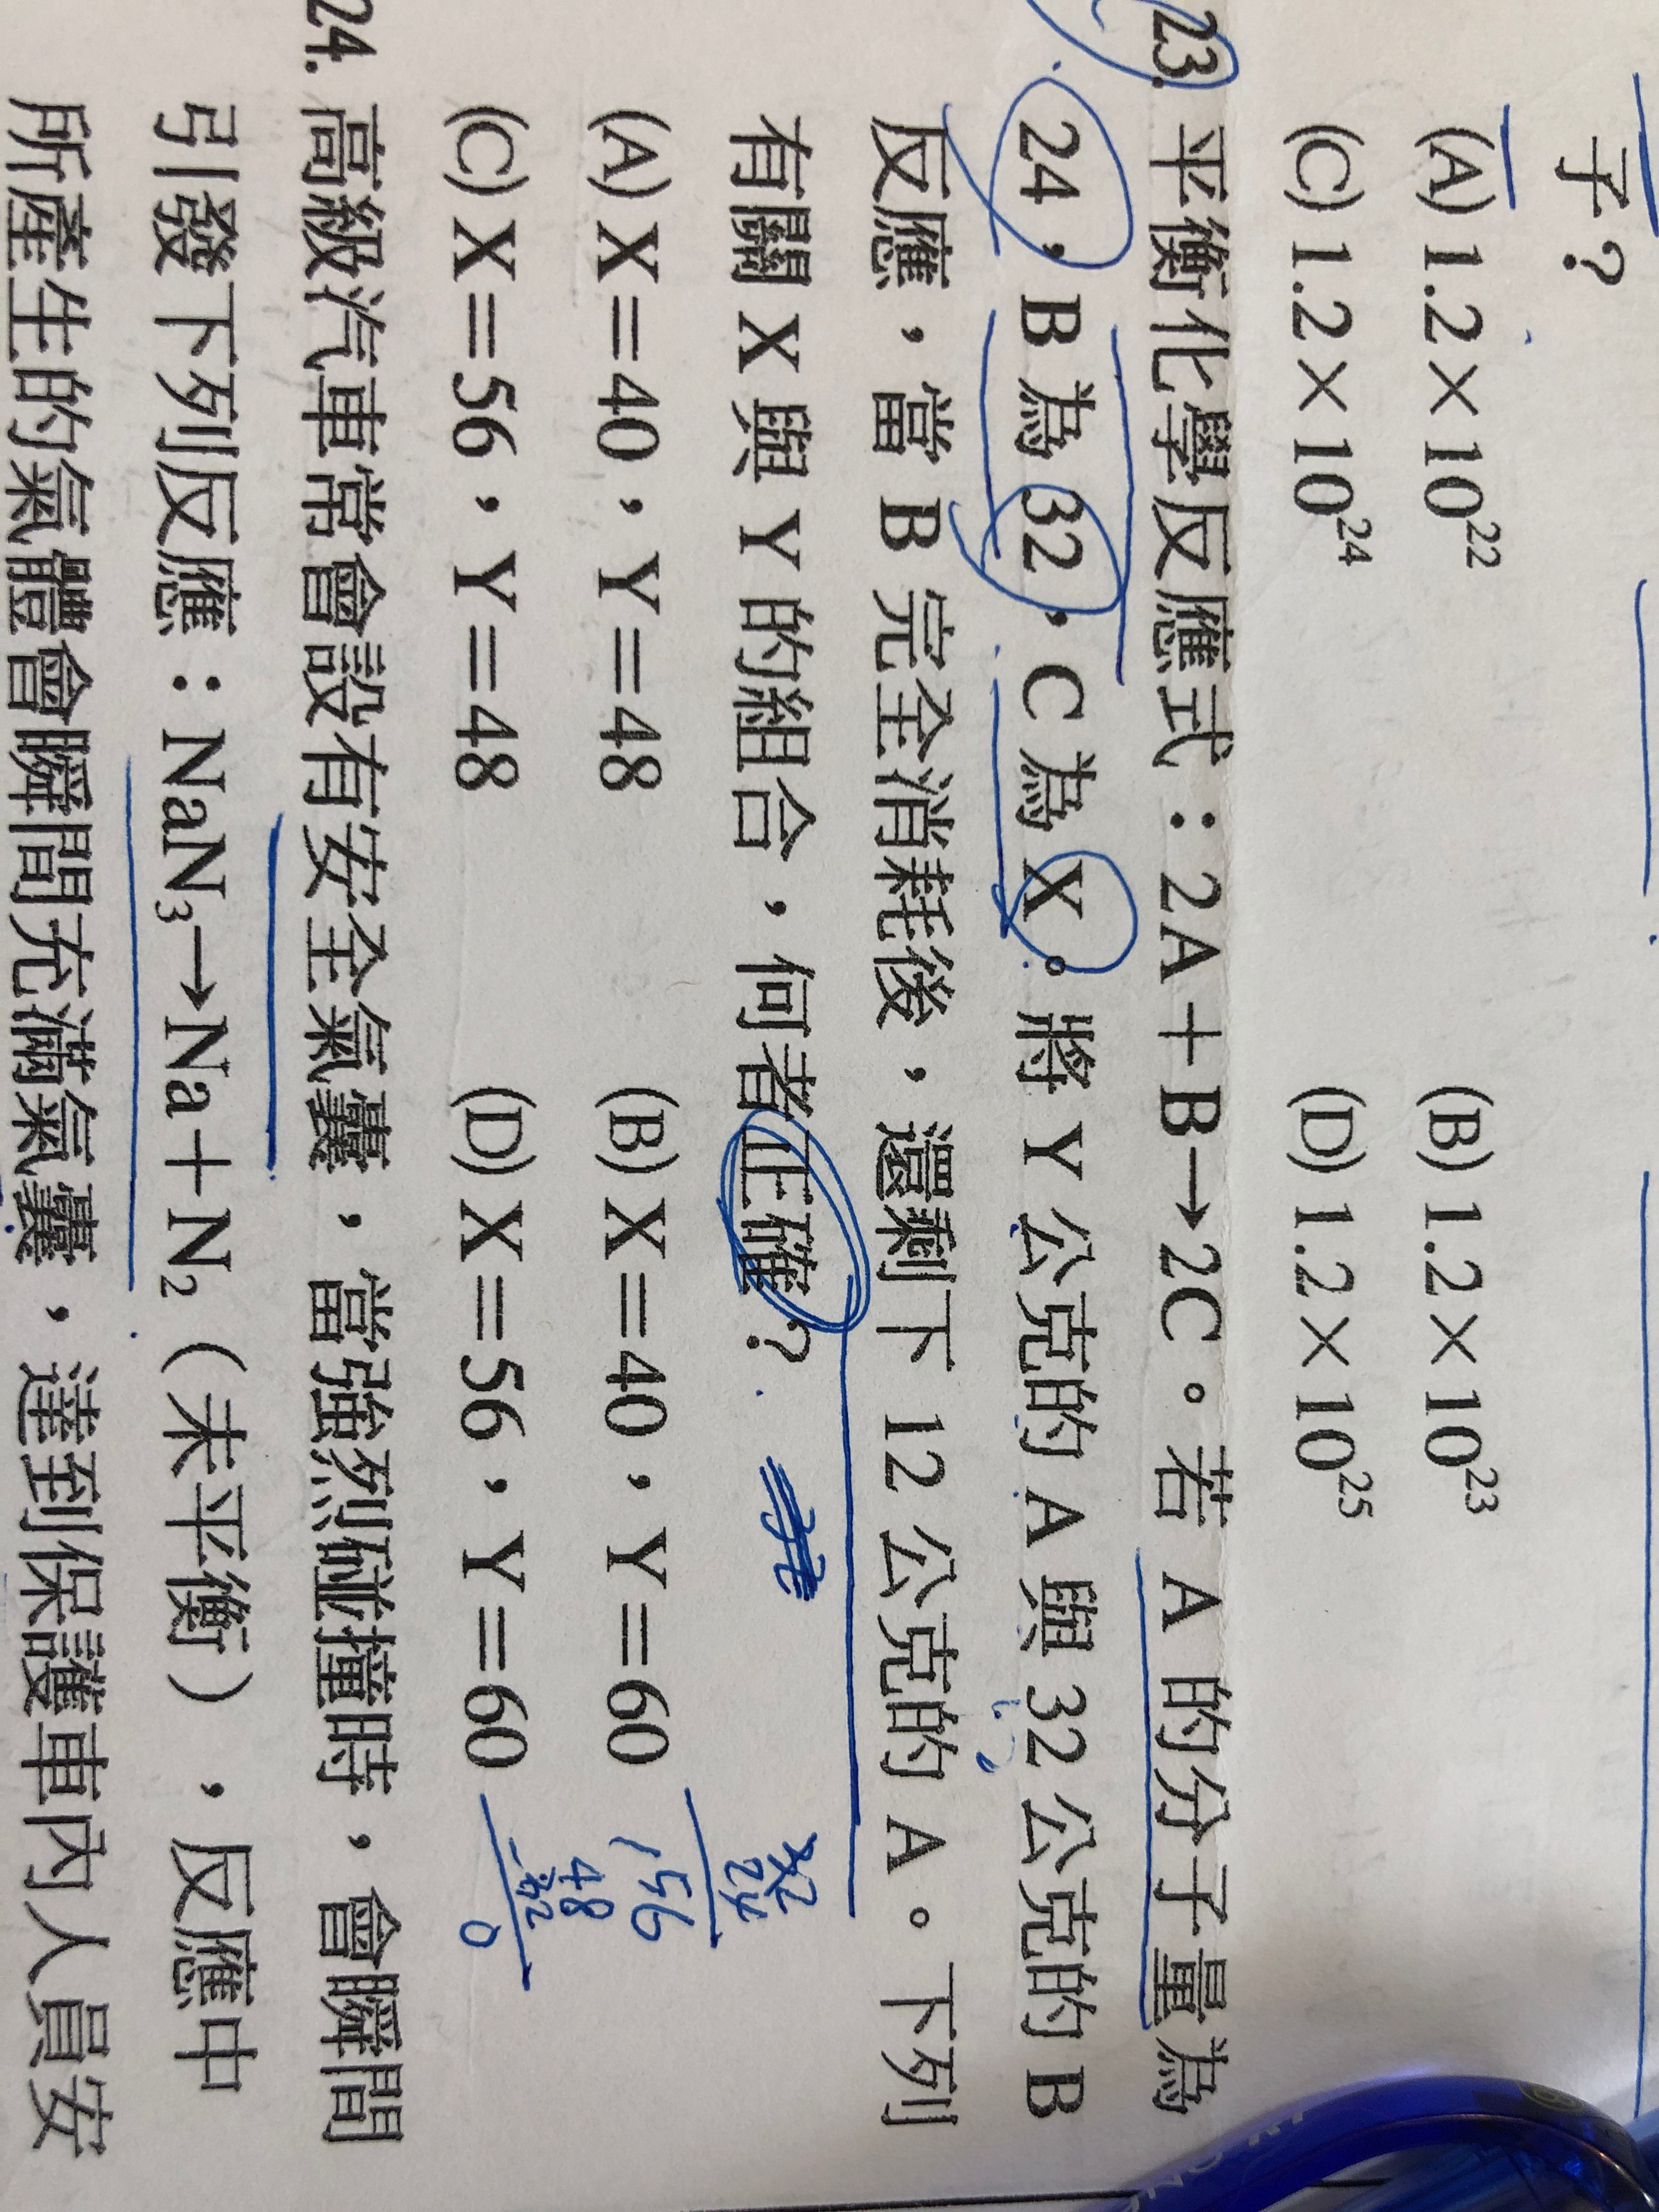 子？
(A) 1.2×10²² (B) 1.2×10²³
(C) 1.2×10²⁴ (D) 1.2×10²⁵
23. 平衡化學反應式：2A＋B→2C。若 A 的分子量為
24，B 為 32，C 為 X。將 Y 公克的 A 與 32 公克的 B
反應，當 B 完全消耗後，還剩下 12 公克的 A。下列
有關 X 與 Y 的組合，何者正確？
(A) X＝40，Y＝48 (B) X＝40，Y＝60
(C) X＝56，Y＝48 (D) X＝56，Y＝60
24
56
48
0
24. 高級汽車常會設有安全氣囊，當強烈碰撞時，會瞬間
引發下列反應：NaN₃→Na＋N₂（未平衡），反應中
所產生的氣體會瞬間充滿氣囊，達到保護車內人員安